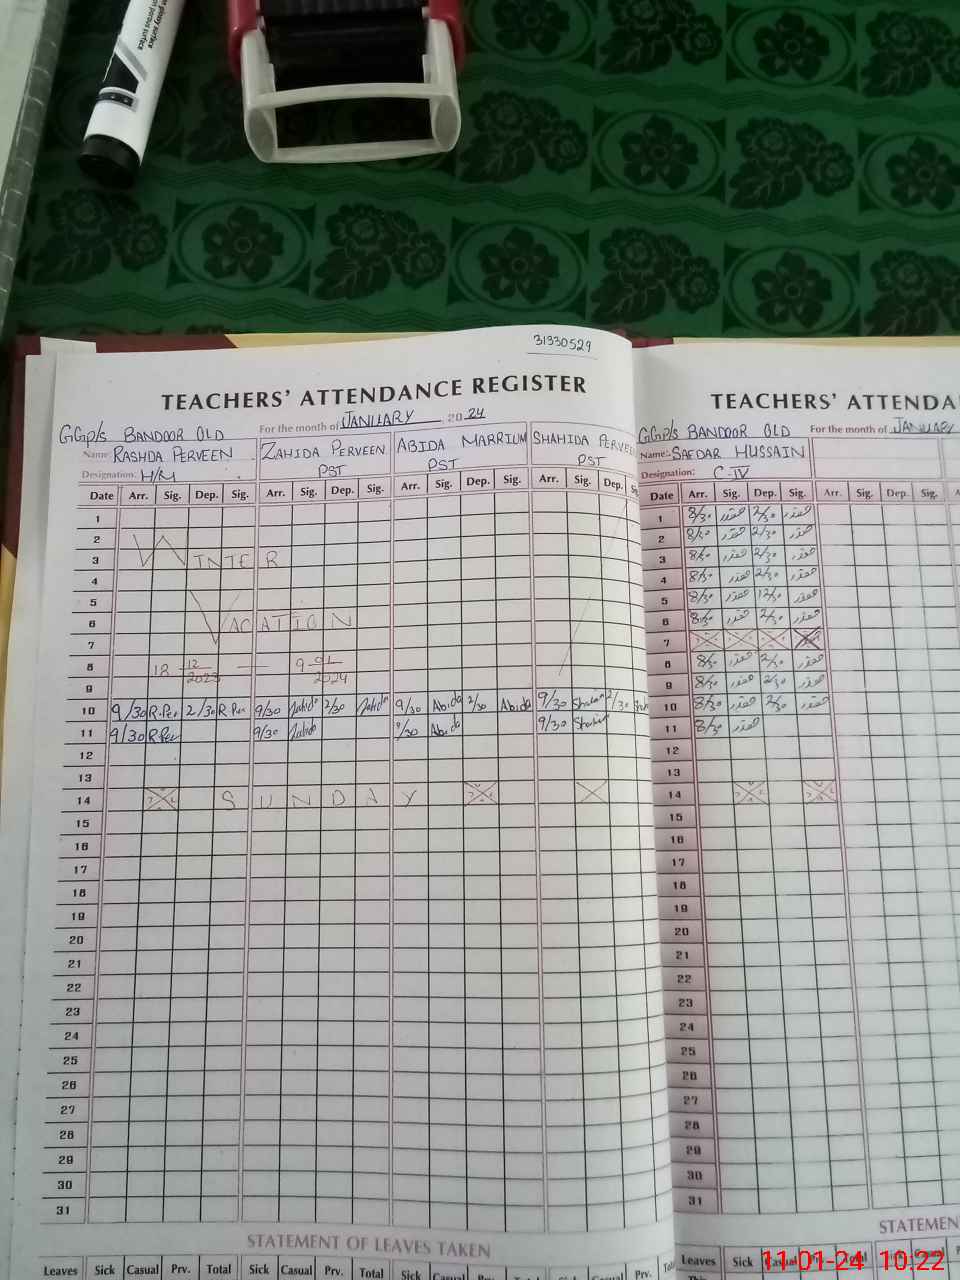 31330529
TEACHERS' ATTENDANCE REGISTER
For the month of JANUARY 2024
GGp/s BANDOOR OLD
Name: RASHDA PERVEEN ZAHIDA PERVEEN ABIDA MARRIUM SHAHIDA PERVEEN
Designation: H/M PST PST PST
Date Arr. Sig. Dep. Sig. Arr. Sig. Dep. Sig. Arr. Sig. Dep. Sig. Arr. Sig. Dep.
1
2
3 WINTER
4
5
6 VACATION
7
8 18 12/2023 — 9 01/2024
9
10 9/30 R.Per 2/30 R.Per 9/30 Zahida 2/30 Zahida 9/30 Abida 2/30 Abida 9/30 2/30
11 9/30 R.Per 9/30 Zahida /30 Abida 9/30
12
13
14 SUNDAY
15
16
17
18
19
20
21
22
23
24
25
26
27
28
29
30
31
STATEMENT OF LEAVES TAKEN
Leaves Sick Casual Prv. Total Sick Casual Prv. Total Sick Casual Prv. Total Sick Casual Prv.
TEACHERS' ATTENDA
GGp/s BANDOOR OLD For the month of JANUARY
Name: SAFDAR HUSSAIN
Designation: C-IV
Date Arr. Sig. Dep. Sig. Arr. Sig. Dep. Sig.
1 8/30 صفدر 2/30 صفدر
2 8/30 صفدر 2/30 صفدر
3 8/30 صفدر 2/30 صفدر
4 8/30 صفدر 2/30 صفدر
5 8/30 صفدر 12/30 صفدر
6 8/30 صفدر 2/30 صفدر
7
8 8/30 صفدر 2/30 صفدر
9 8/30 صفدر 2/30 صفدر
10 8/30 صفدر 2/30 صفدر
11 8/30 صفدر
12
13
14
15
16
17
18
19
20
21
22
23
24
25
26
27
28
29
30
31
STATEMEN
Leaves Sick Casual Prv. Total Sick Casual
11-01-24 10:22